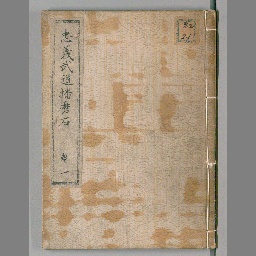 忠義武道播磨石
巻一